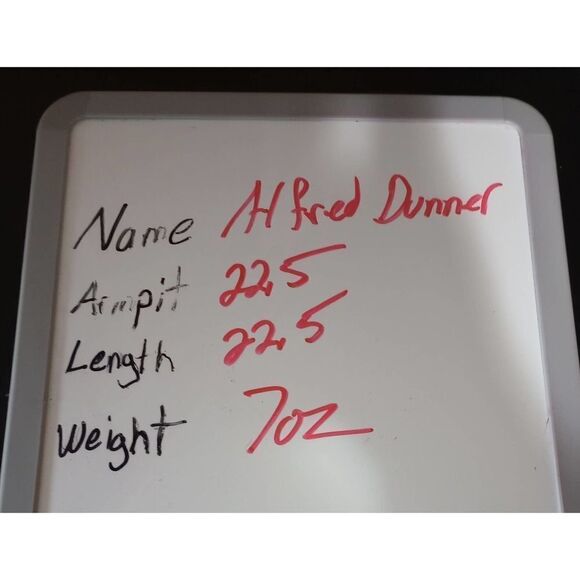 Name Alfred Dunner
Armpit 22.5
Length 22.5
Weight 7oz